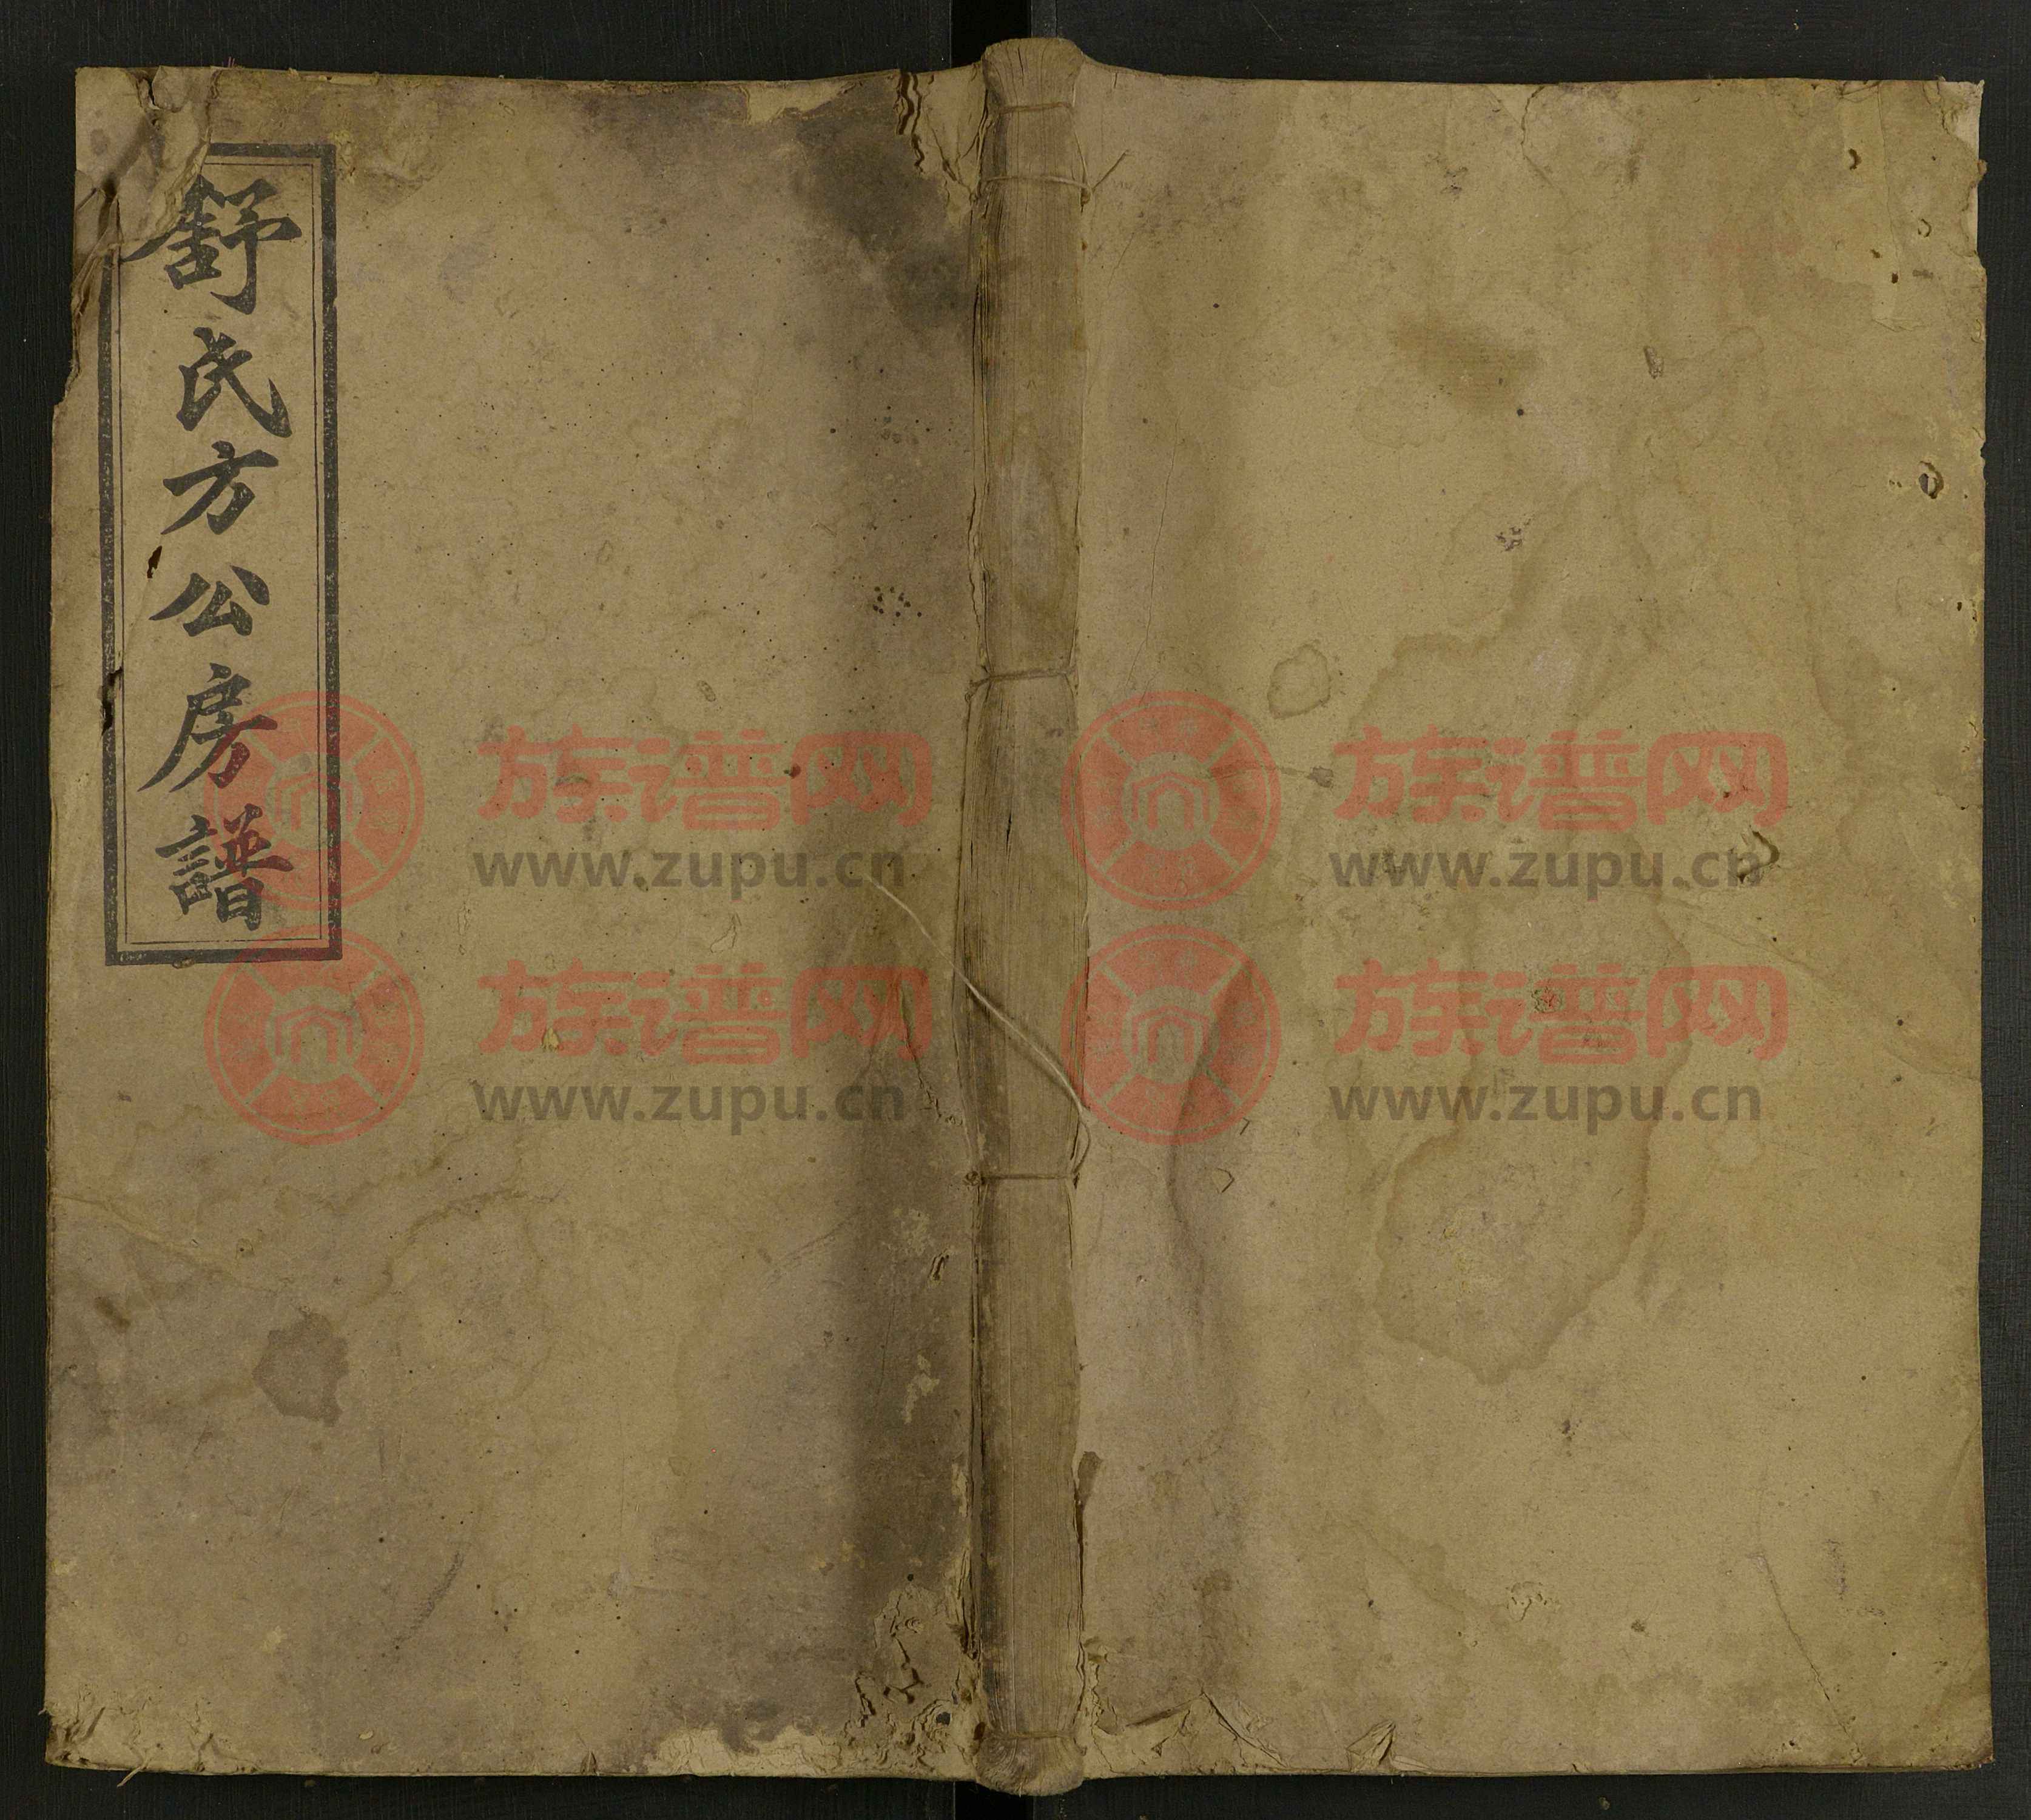 舒氏方公房譜
族谱网
www.zupu.cn
族谱网
www.zupu.cn
族谱网
www.zupu.cn
族谱网
www.zupu.cn